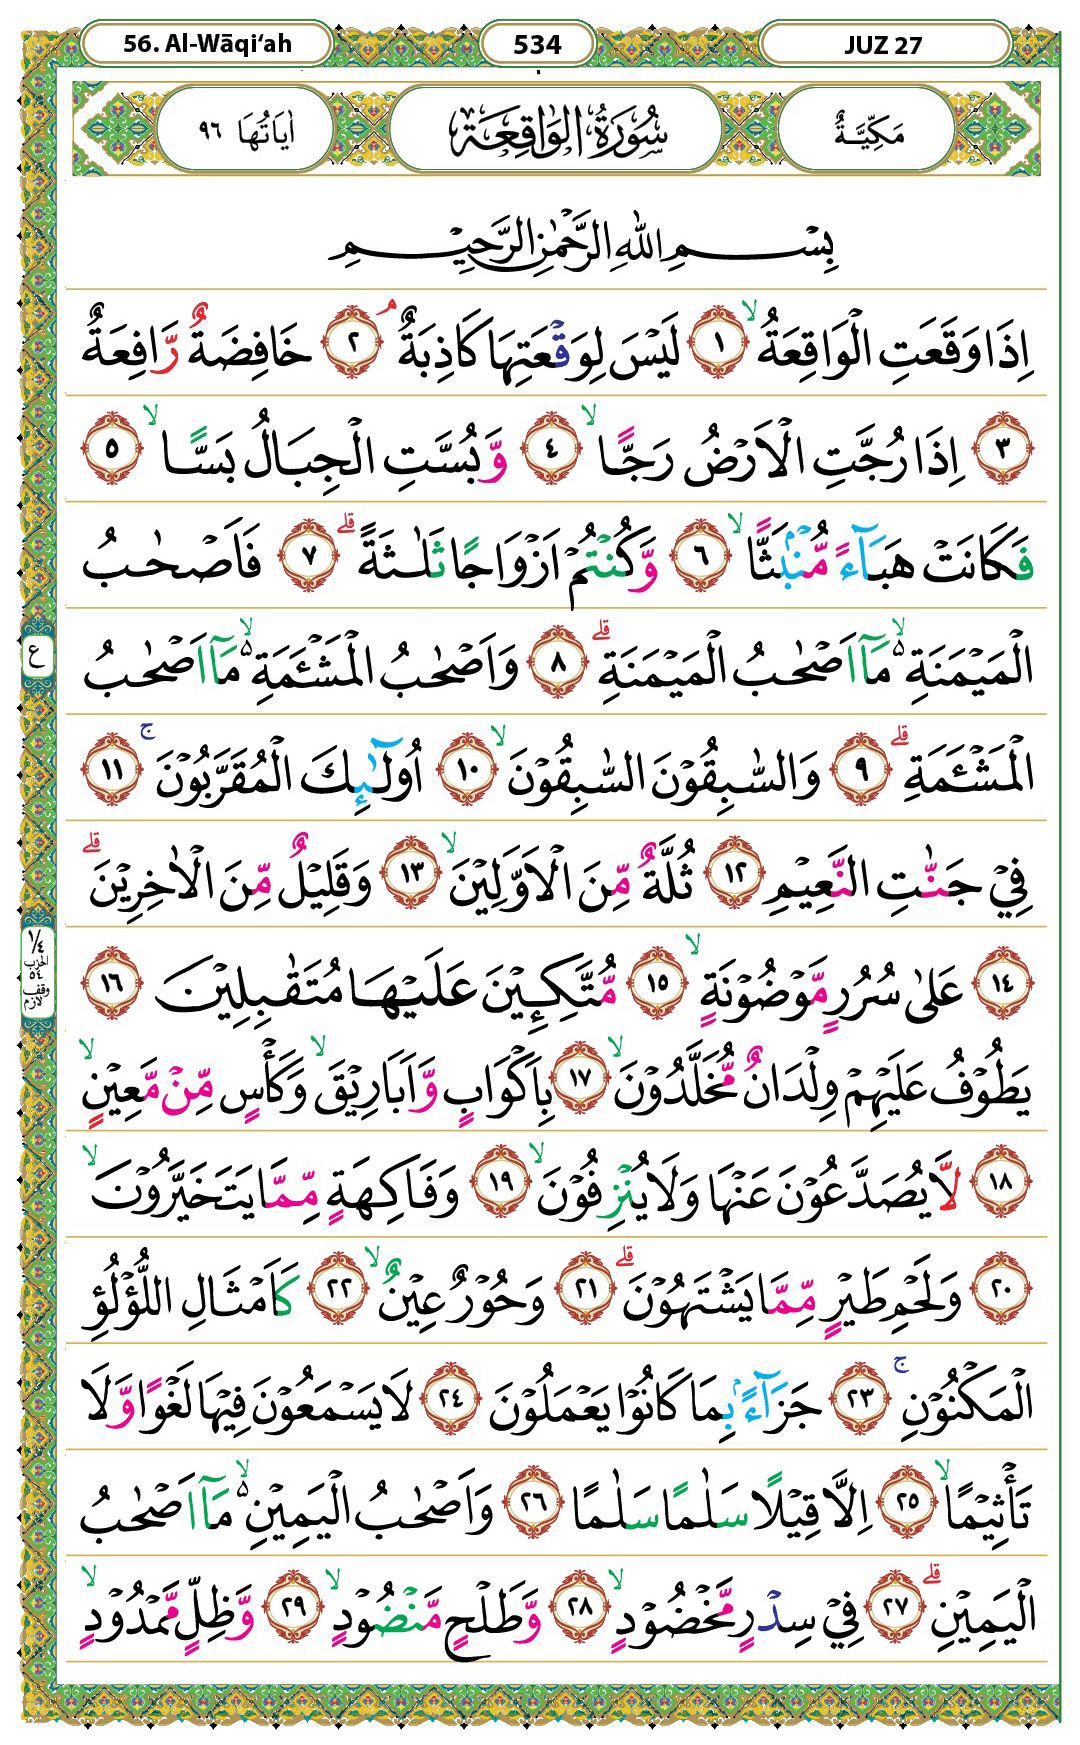 56. Al-Wāqi‘ah 534 JUZ 27
مَكِّيَّةٌ سُوْرَةُ الْوَاقِعَةِ اٰيَاتُهَا ٩٦
بِسْمِ اللّٰهِ الرَّحْمٰنِ الرَّحِيْمِ
اِذَا وَقَعَتِ الْوَاقِعَةُ ۙ ١ لَيْسَ لِوَقْعَتِهَا كَاذِبَةٌ ۘ ٢ خَافِضَةٌ رَّافِعَةٌ
٣ اِذَا رُجَّتِ الْاَرْضُ رَجًّا ۙ ٤ وَّبُسَّتِ الْجِبَالُ بَسًّا ۙ ٥
فَكَانَتْ هَبَاۤءً مُّنْۢبَثًّا ۙ ٦ وَّكُنْتُمْ اَزْوَاجًا ثَلٰثَةً ۗ ٧ فَاَصْحٰبُ
الْمَيْمَنَةِ ەۙ مَآ اَصْحٰبُ الْمَيْمَنَةِ ۗ ٨ وَاَصْحٰبُ الْمَشْـَٔمَةِ ەۙ مَآ اَصْحٰبُ
ع
الْمَشْـَٔمَةِ ۗ ٩ وَالسّٰبِقُوْنَ السّٰبِقُوْنَ ۙ ١٠ اُولٰۤىِٕكَ الْمُقَرَّبُوْنَ ۚ ١١
فِيْ جَنّٰتِ النَّعِيْمِ ١٢ ثُلَّةٌ مِّنَ الْاَوَّلِيْنَ ۙ ١٣ وَقَلِيْلٌ مِّنَ الْاٰخِرِيْنَ ۗ
١/٤
الحزب
٥٤
وقف
لازم
١٤ عَلٰى سُرُرٍ مَّوْضُوْنَةٍ ۙ ١٥ مُّتَّكِـِٕيْنَ عَلَيْهَا مُتَقٰبِلِيْنَ ١٦
يَطُوْفُ عَلَيْهِمْ وِلْدَانٌ مُّخَلَّدُوْنَ ۙ ١٧ بِاَكْوَابٍ وَّاَبَارِيْقَ ۙ وَكَأْسٍ مِّنْ مَّعِيْنٍ ۙ
١٨ لَّا يُصَدَّعُوْنَ عَنْهَا وَلَا يُنْزِفُوْنَ ۙ ١٩ وَفَاكِهَةٍ مِّمَّا يَتَخَيَّرُوْنَ ۙ
٢٠ وَلَحْمِ طَيْرٍ مِّمَّا يَشْتَهُوْنَ ۗ ٢١ وَحُوْرٌ عِيْنٌ ۙ ٢٢ كَاَمْثَالِ اللُّؤْلُؤِ
الْمَكْنُوْنِ ۚ ٢٣ جَزَاۤءً ۢبِمَا كَانُوْا يَعْمَلُوْنَ ٢٤ لَا يَسْمَعُوْنَ فِيْهَا لَغْوًا وَّلَا
تَأْثِيْمًا ۙ ٢٥ اِلَّا قِيْلًا سَلٰمًا سَلٰمًا ٢٦ وَاَصْحٰبُ الْيَمِيْنِ ەۙ مَآ اَصْحٰبُ
الْيَمِيْنِ ۗ ٢٧ فِيْ سِدْرٍ مَّخْضُوْدٍ ۙ ٢٨ وَّطَلْحٍ مَّنْضُوْدٍ ۙ ٢٩ وَّظِلٍّ مَّمْدُوْدٍ ۙ